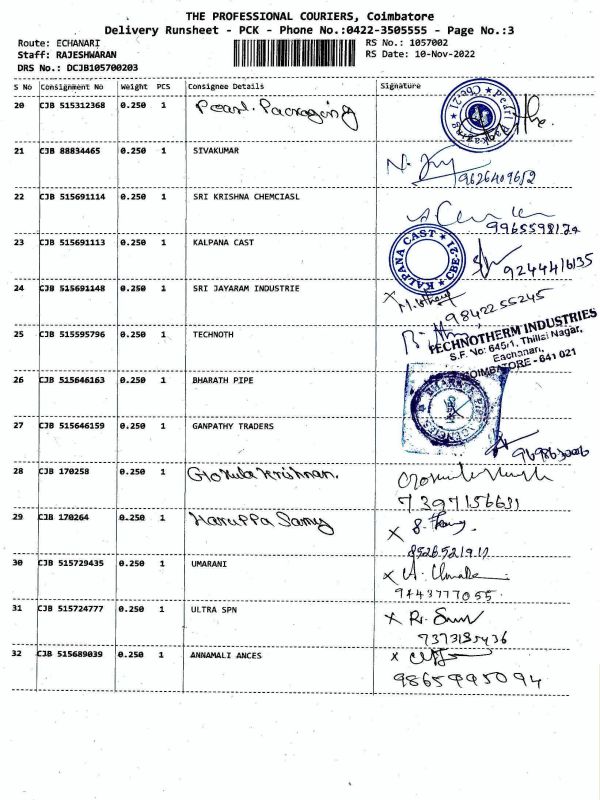 THE PROFESSIONAL COURIERS, Coimbatore
Delivery Runsheet - PCK - Phone No.:0422-3505555 - Page No.:3
Route: ECHANARI RS No.: 1057002
Staff: RAJESHWARAN RS Date: 10-Nov-2022
DRS No.: DCJB105700203
S No Consignment No Weight PCS Consignee Details Signature
20 CJB 515312368 0.250 1 Pearl. Packaging
21 CJB 88834465 0.250 1 SIVAKUMAR
9626409652
22 CJB 515691114 0.250 1 SRI KRISHNA CHEMCIASL
9965598174
23 CJB 515691113 0.250 1 KALPANA CAST
KALPANA CAST CBE-21
9244416135
24 CJB 515691148 0.250 1 SRI JAYARAM INDUSTRIE
9842255245
25 CJB 515595796 1 0.250 TECHNOTH
TECHNOTHERM INDUSTRIES
S.F. No: 645/1, Thillai Nagar,
Eachanari,
COIMBATORE - 641 021
26 CJB 515646163 0.250 1 BHARATH PIPE
27 CJB 515646159 0.250 1 GANPATHY TRADERS
28 CJB 170258 0.250 1 Gokula Krishnan.
7397156631
29 CJB 170264 0.250 1 Karuppa Samy
30 CJB 515729435 0.250 1 UMARANI
9443777055
31 CJB 515724777 0.250 1 ULTRA SPN
7373185436
32 CJB 515689039 0.250 1 ANNAMALI ANCES
9865995094